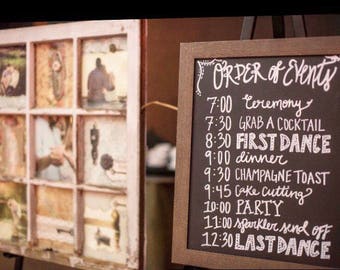 ORDER of EVENTS
7:00 Ceremony
7:30 GRAB A COCKTAIL
8:30 FIRST DANCE
9:00 dinner
9:30 CHAMPAGNE TOAST
9:45 Cake Cutting
10:00 PARTY
11:00 sparkler send off
12:30 LAST DANCE